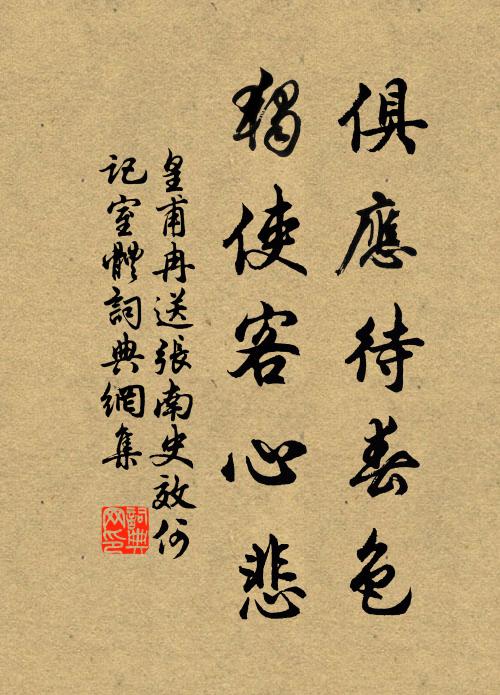 俱應待春色
獨使客心悲
皇甫冉送張南史效何
記室體詞典網集
詞典網印